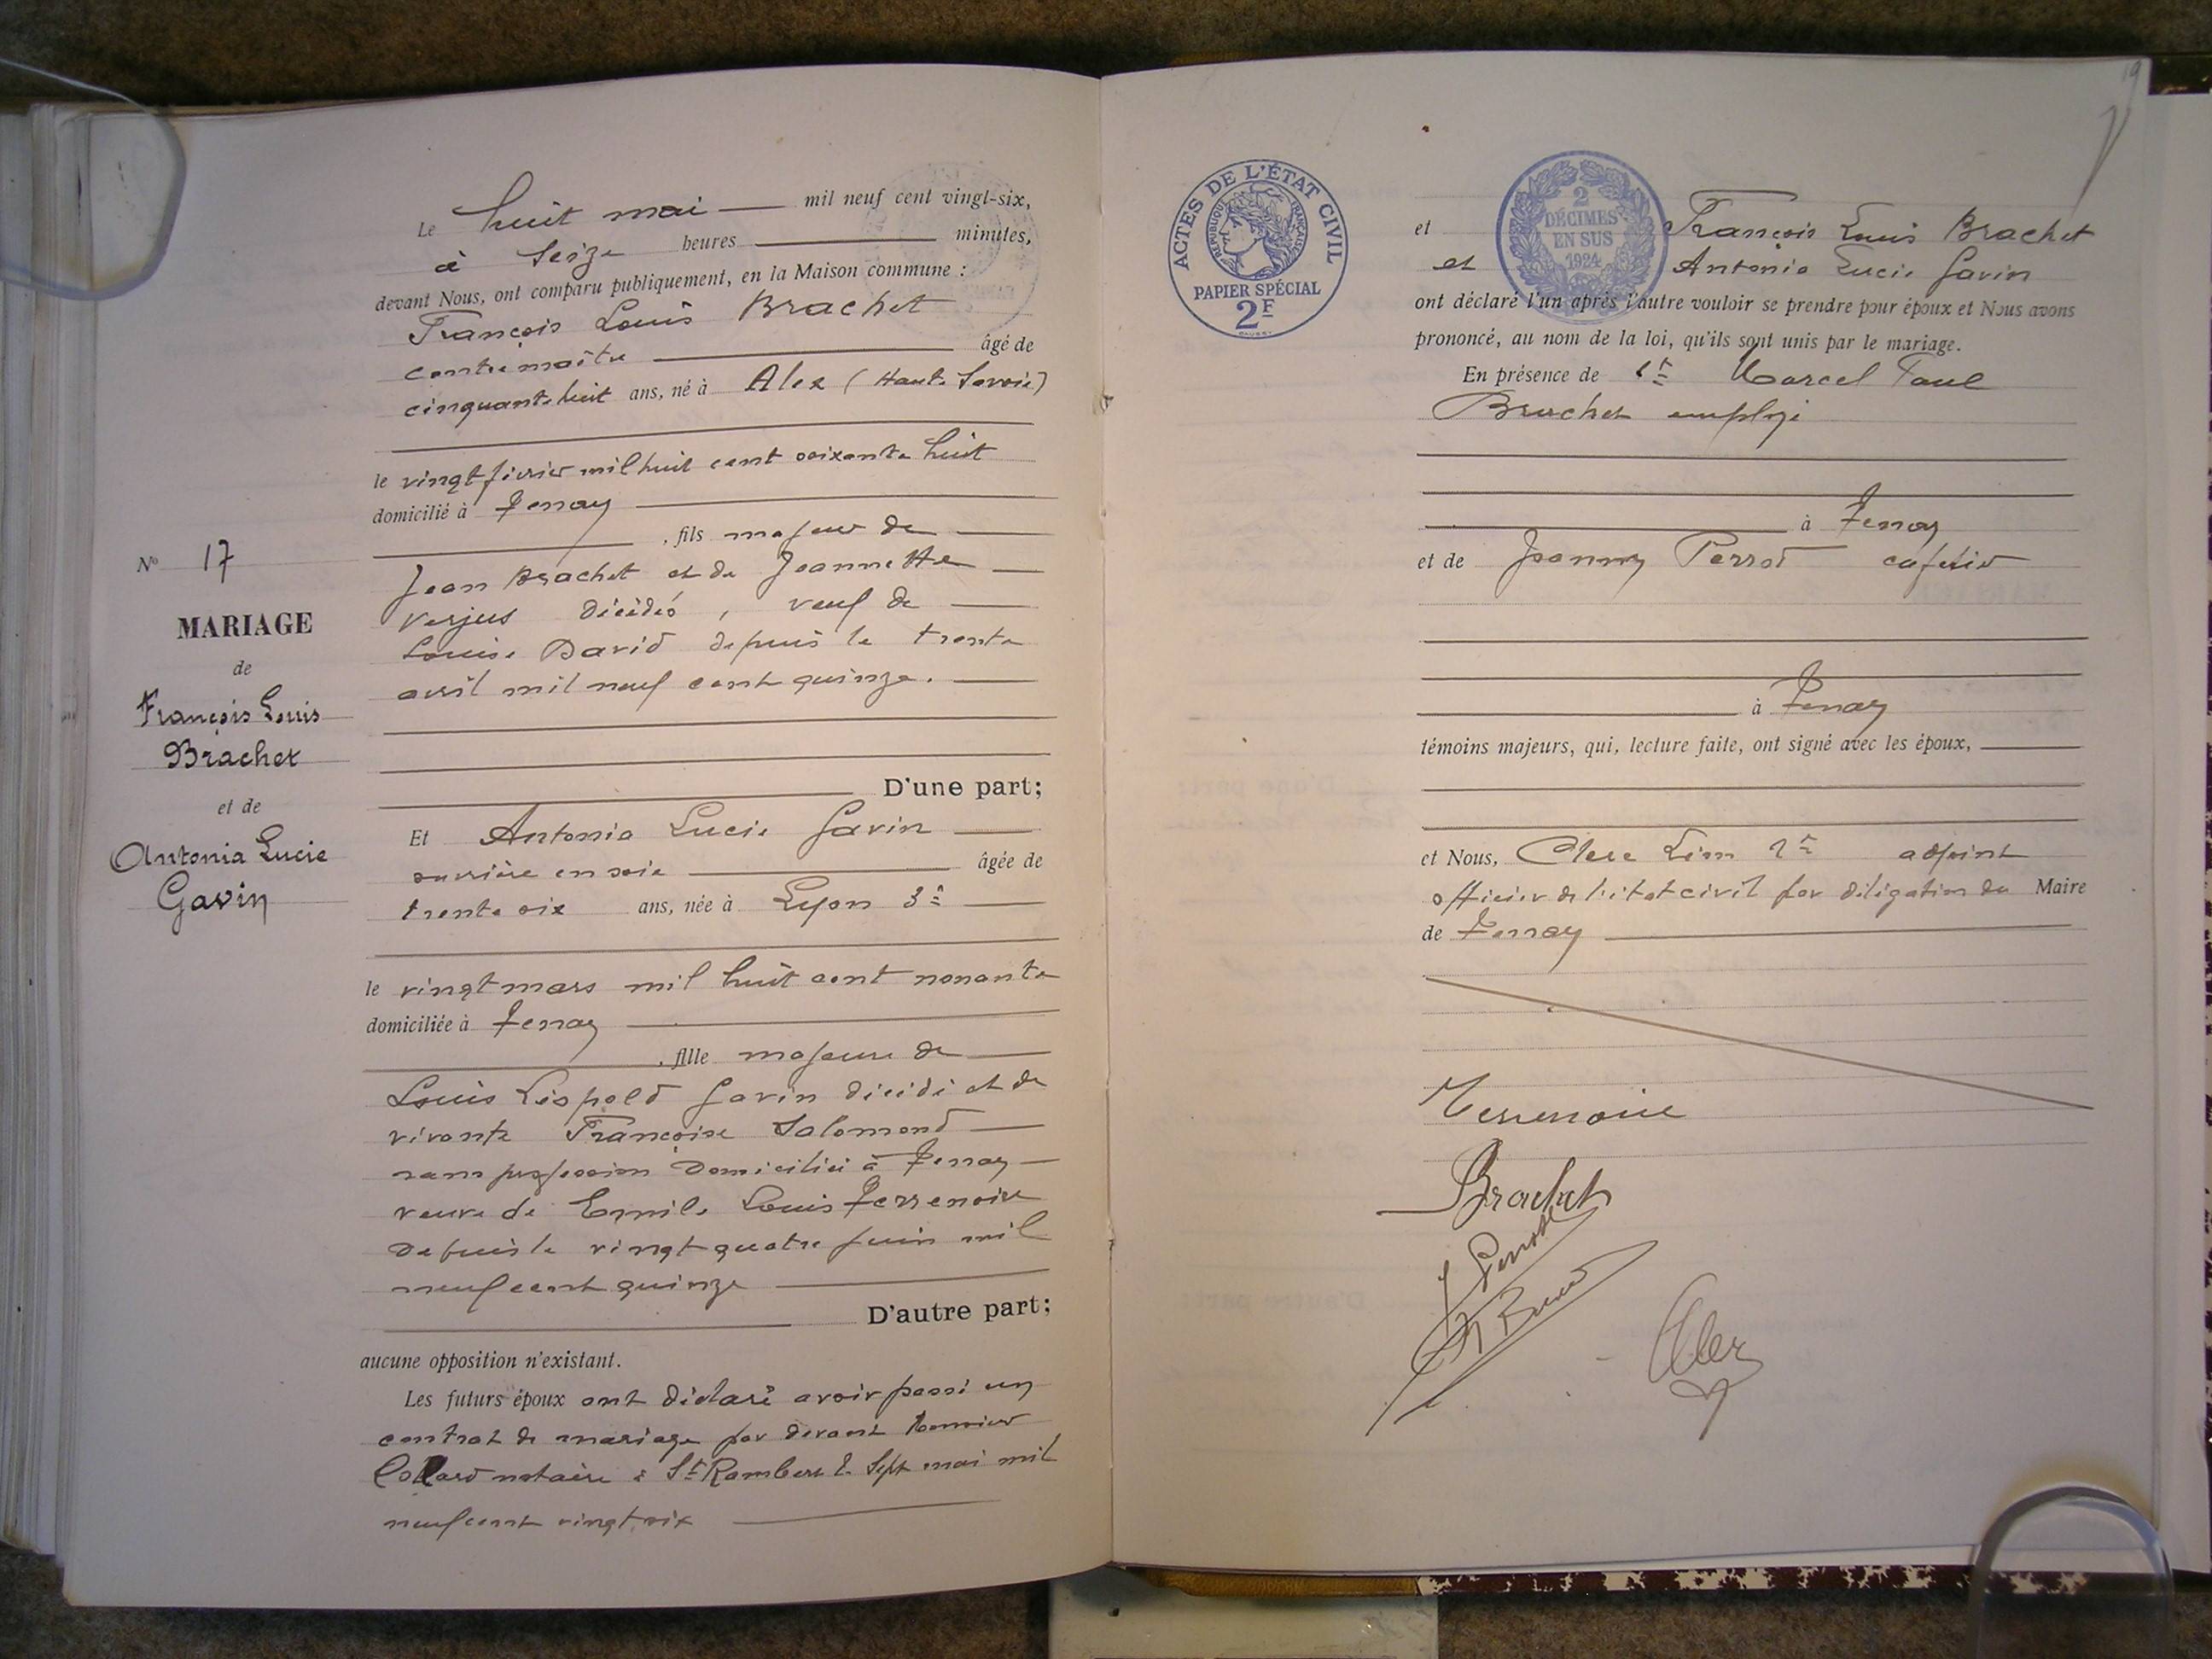 Le huit mai mil neuf cent vingt-six,
à seize heures minutes,
devant Nous, ont comparu publiquement, en la Maison commune :
François Louis Brachet
contremaître âgé de
cinquante huit ans, né à Alex (Haute Savoie)
le vingt février mil huit cent soixante huit
domicilié à Tenay
, fils majeur de
Jean Brachet et de Jeannette
Verjus décédés, veuf de
Louise David depuis le trente
avril mil neuf cent quinze.
D'une part;
Et Antonia Lucie Gavin
ouvrière en soie âgée de
trente six ans, née à Lyon 3e
le vingt mars mil huit cent nonante
domiciliée à Tenay
, fille majeure de
Louis Léopold Gavin décédé et de
vivante Françoise Salomond
sans profession domiciliée à Tenay
veuve de Emile Louis Terrenoire
depuis le vingt quatre juin mil
neuf cent quinze
D'autre part;
aucune opposition n'existant.
Les futurs époux ont déclaré avoir passé un
contrat de mariage par devant
notaire à St Rambert le sept mai mil
neuf cent vingt six
No 17
MARIAGE
de
François Louis
Brachet
et de
Antonia Lucie
Gavin
19
ACTES DE L'ÉTAT CIVIL
RÉPUBLIQUE FRANÇAISE
PAPIER SPÉCIAL
2F
2
DÉCIMES
EN SUS
1924
et François Louis Brachet
et Antonia Lucie Gavin
ont déclaré l'un après l'autre vouloir se prendre pour époux et Nous avons
prononcé, au nom de la loi, qu'ils sont unis par le mariage.
En présence de 1r Marcel Paul
Brachet employé
à Tenay
et de Joanny Perrod cafetier
à Tenay
témoins majeurs, qui, lecture faite, ont signé avec les époux,
et Nous, Clerc adjoint
officier de l'état civil par délégation du Maire
de Tenay
Terrenoire
Brachet